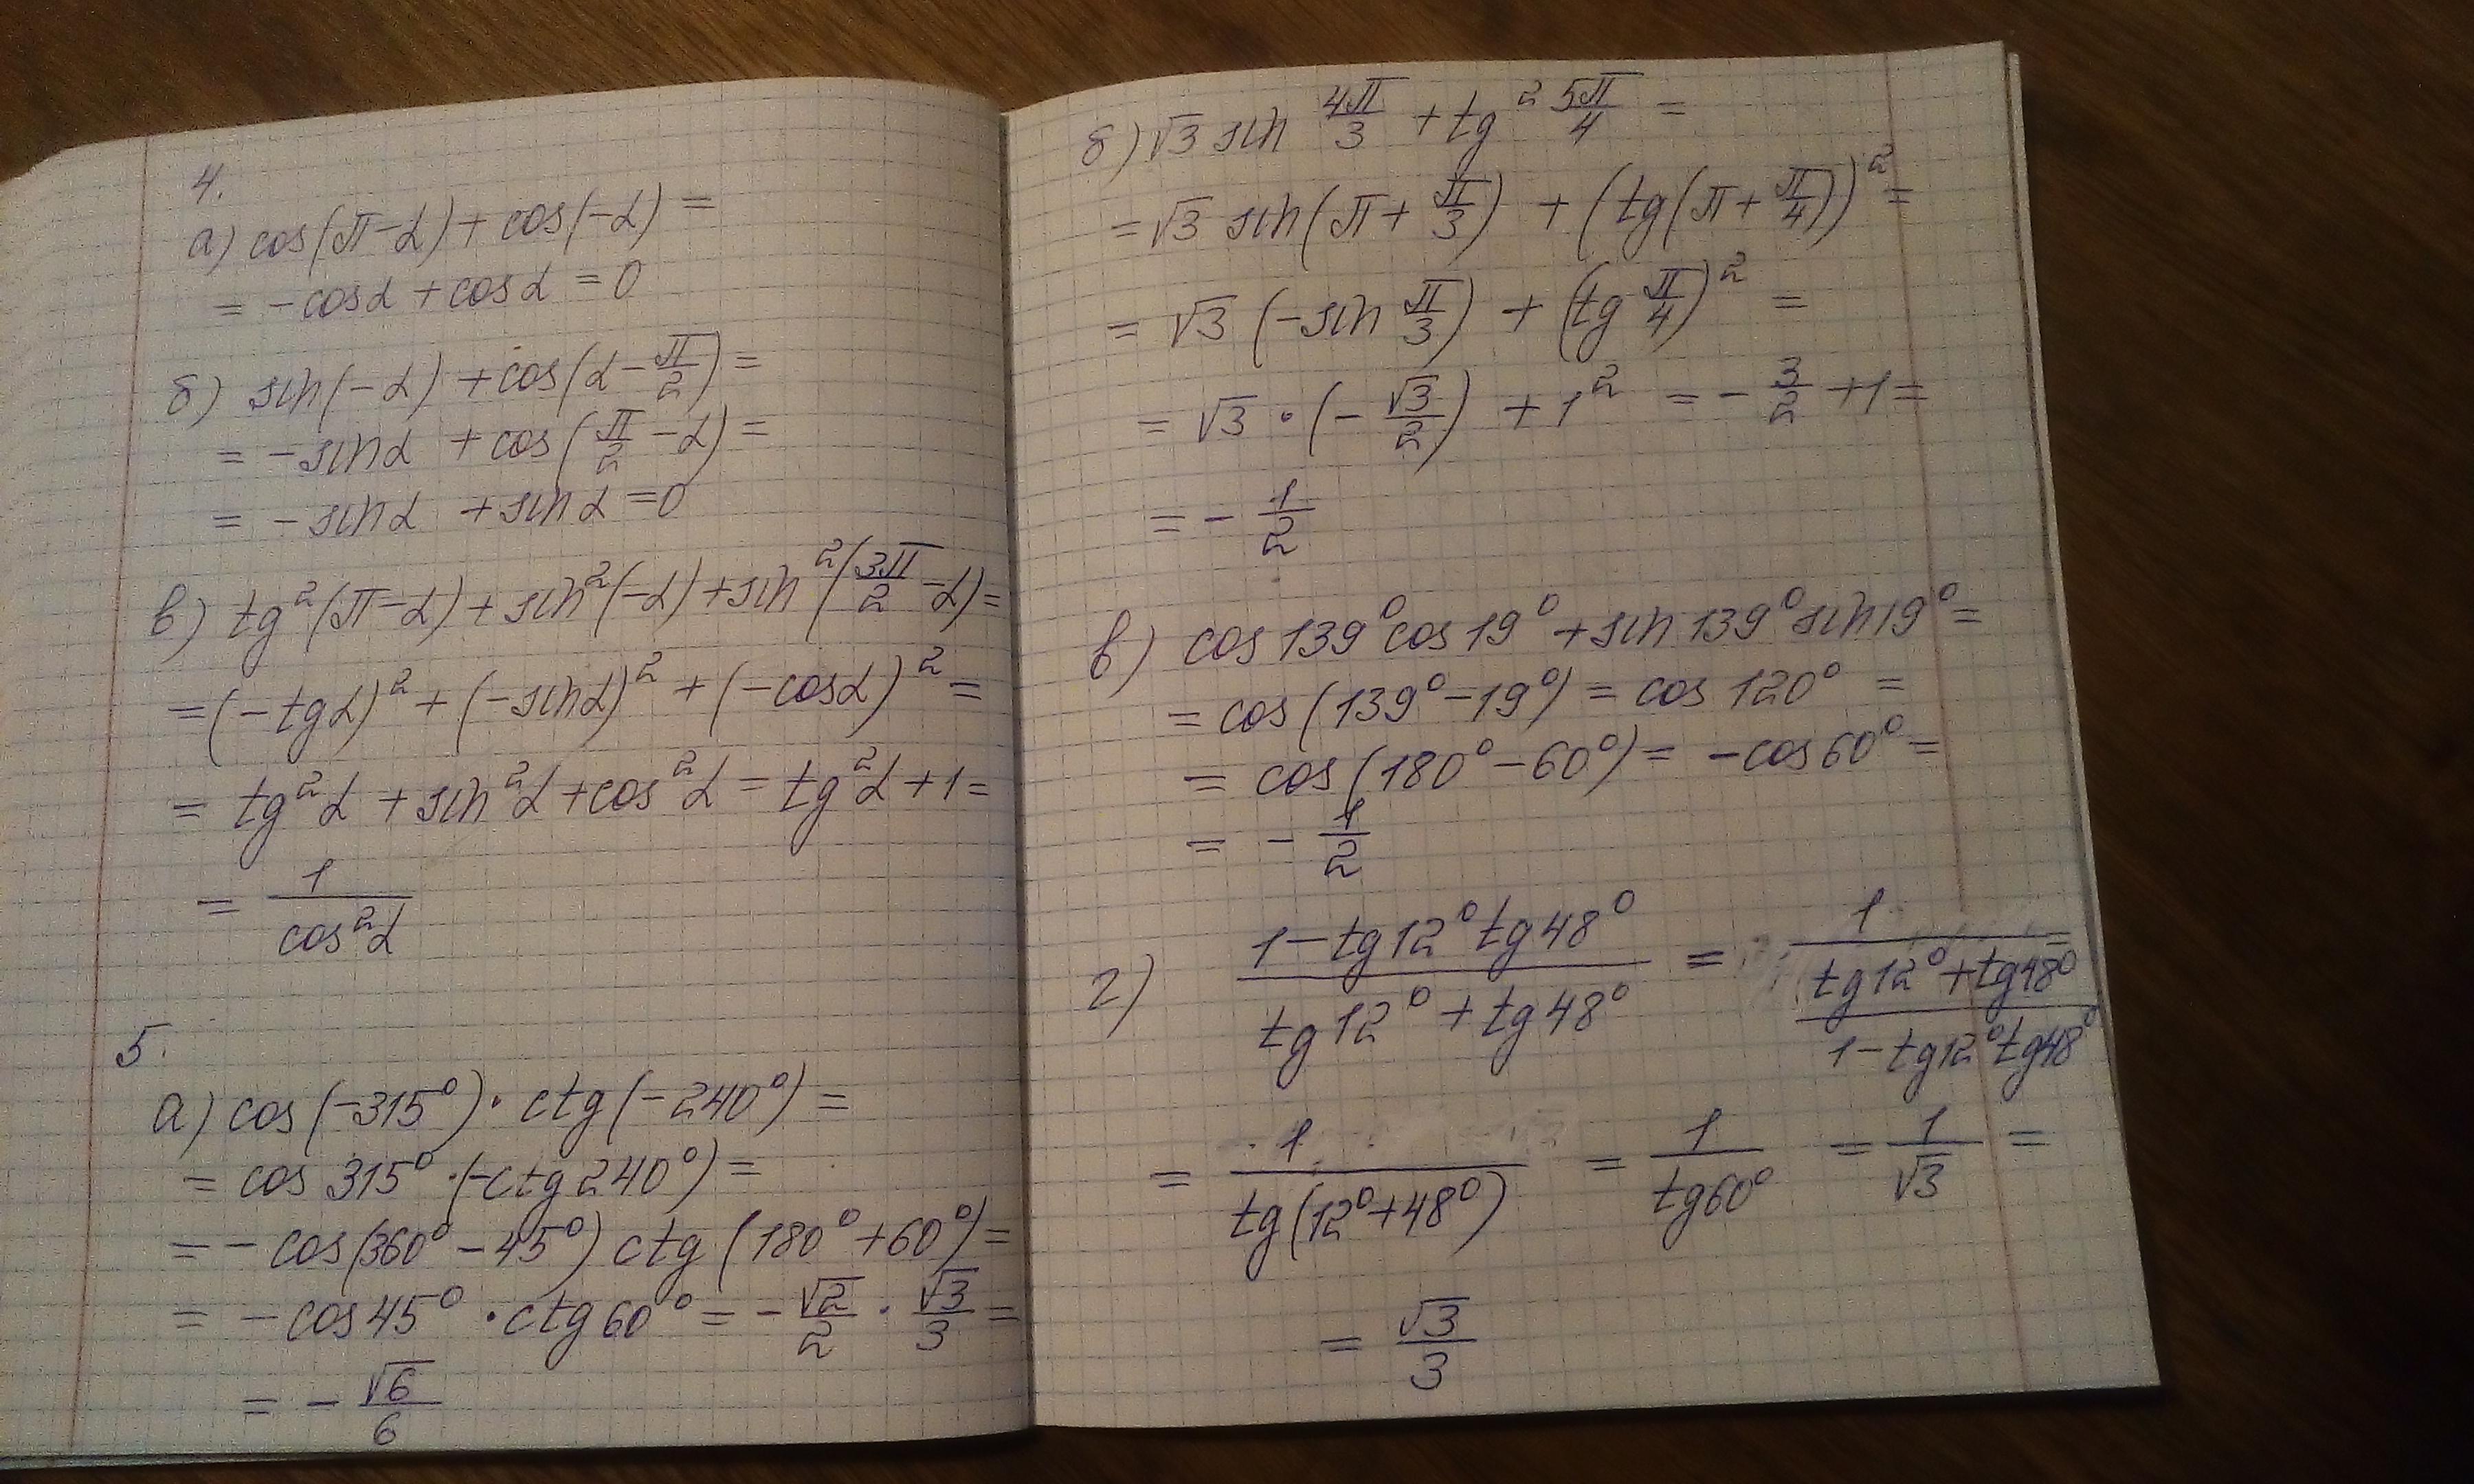 4.
а) cos(π-α) + cos(-α) =
= -cosα + cosα = 0
б) sin(-α) + cos(α - π/2) =
= -sinα + cos(π/2 - α) =
= -sinα + sinα = 0
в) tg²(π-α) + sin²(-α) + sin²(3π/2 - α) =
= (-tgα)² + (-sinα)² + (-cosα)² =
= tg²α + sin²α + cos²α = tg²α + 1 =
= 1/cos²α
5.
а) cos(-315°) · ctg(-240°) =
= cos 315° · (-ctg 240°) =
= - cos(360° - 45°) ctg(180° + 60°) =
= - cos 45° · ctg 60° = - √2/2 · √3/3 =
= - √6/6
б) √3 sin 4π/3 + tg² 5π/4 =
= √3 sin(π + π/3) + (tg(π + π/4))² =
= √3 (-sin π/3) + (tg π/4)² =
= √3 · (- √3/2) + 1² = - 3/2 + 1 =
= - 1/2
в) cos 139° cos 19° + sin 139° sin 19° =
= cos(139° - 19°) = cos 120° =
= cos(180° - 60°) = -cos 60° =
= - 1/2
г) (1 - tg 12° tg 48°)/(tg 12° + tg 48°) = 1/((tg 12° + tg 48°)/(1 - tg 12° tg 48°)) =
= 1/tg(12° + 48°) = 1/tg 60° = 1/√3 =
= √3/3